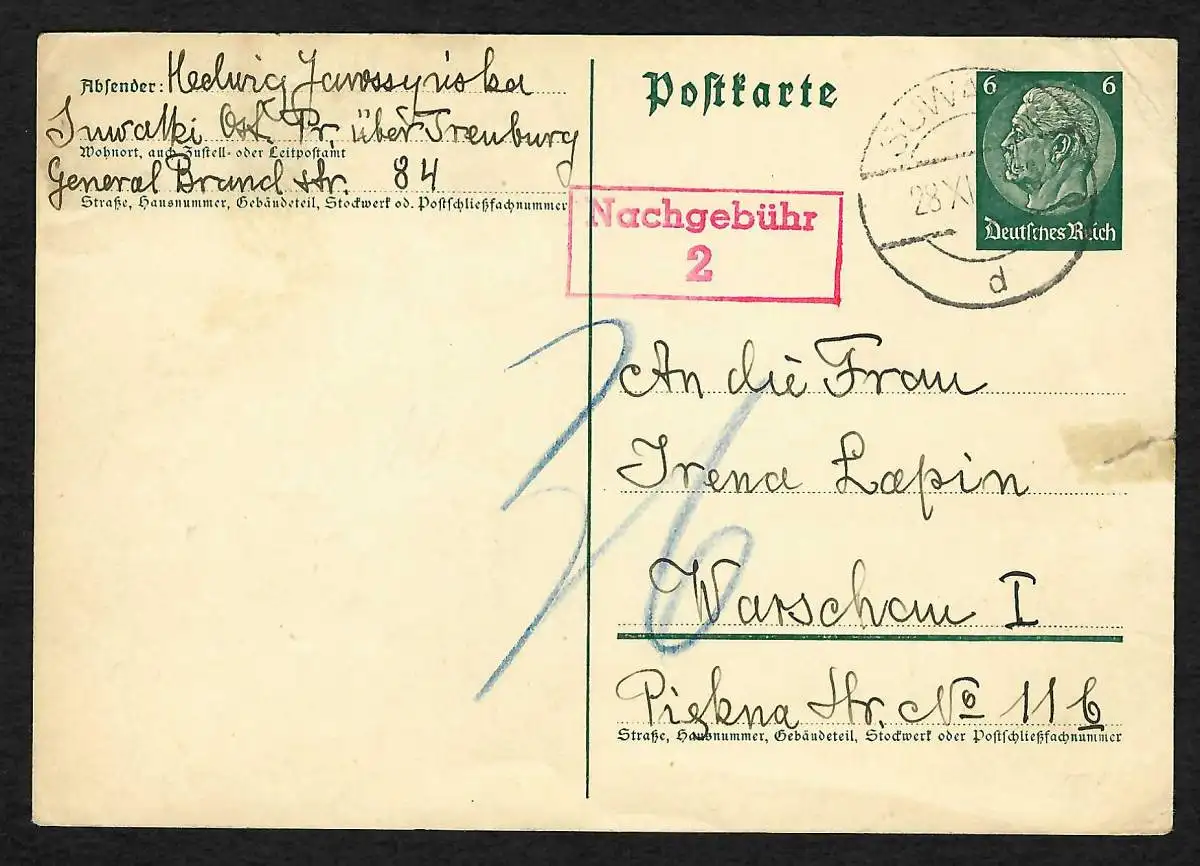 Absender: Hedwig Jarossyńska
Suwałki Ost. Pr. über Treuburg
Wohnort, auch Zustell- oder Leitpostamt
General Brand str. 84
Straße, Hausnummer, Gebäudeteil, Stockwerk od. Postschließfachnummer
Postkarte
6 6
Deutsches Reich
SUWA
28 XI
d
Nachgebühr
2
An die Frau
Irena Łapin
Warschau I
Piękna Str. No 11 b
Straße, Hausnummer, Gebäudeteil, Stockwerk oder Postschließfachnummer